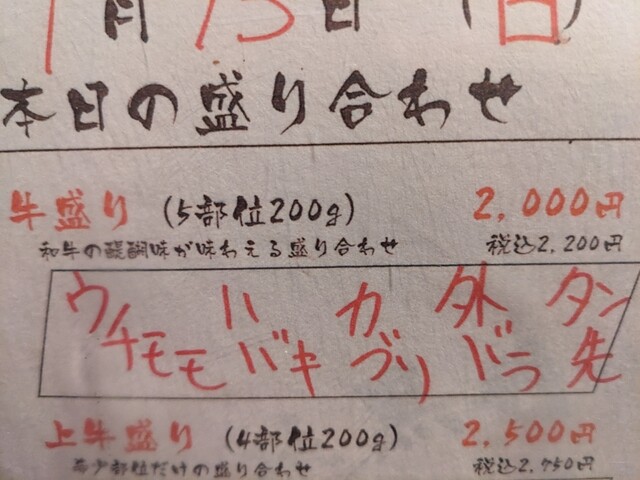 月15日(日)
本日の盛り合わせ
牛盛り (5部位200g) 2,000円
和牛の醍醐味が味わえる盛り合わせ 税込2,200円
ウチモモ ハバキ カヅリ 外バラ タン先
上牛盛り (4部位200g) 2,500円
希少部位だけの盛り合わせ 税込2,750円